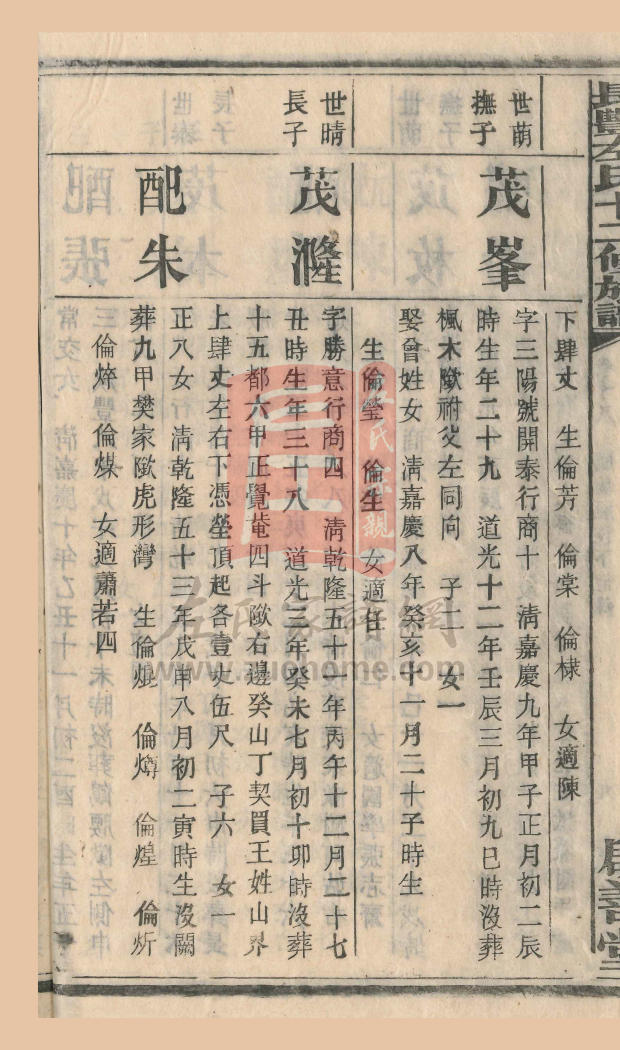 長豐左氏十二修族譜
下肆丈　生倫芳　倫棠　倫棣　女適陳
世萌
撫子
茂峯
字三陽號開泰行商十　淸嘉慶九年甲子正月初二辰
時生年二十九　道光十二年壬辰三月初九巳時沒葬
楓木㘭祔父左同向　子二　女一
娶曾姓女　淸嘉慶八年癸亥十一月二十子時生
生倫瑩　倫生　女適任
世晴
長子
茂漋
字勝意行商四　淸乾隆五十一年丙午十二月二十七
丑時生年三十八　道光三年癸未七月初十卯時沒葬
十五都六甲正覺菴四斗㘭右邊癸山丁契買王姓山界
上肆丈左右下憑塋頂起各壹丈伍尺　子六　女一
配朱
正八女　淸乾隆五十三年戊申八月初二寅時生沒闕
葬九甲樊家㘭虎形灣　生倫焜　倫燇　倫煌　倫炘
倫焠　倫煤　女適蕭若四
左氏家譜網
www.zuohome.com